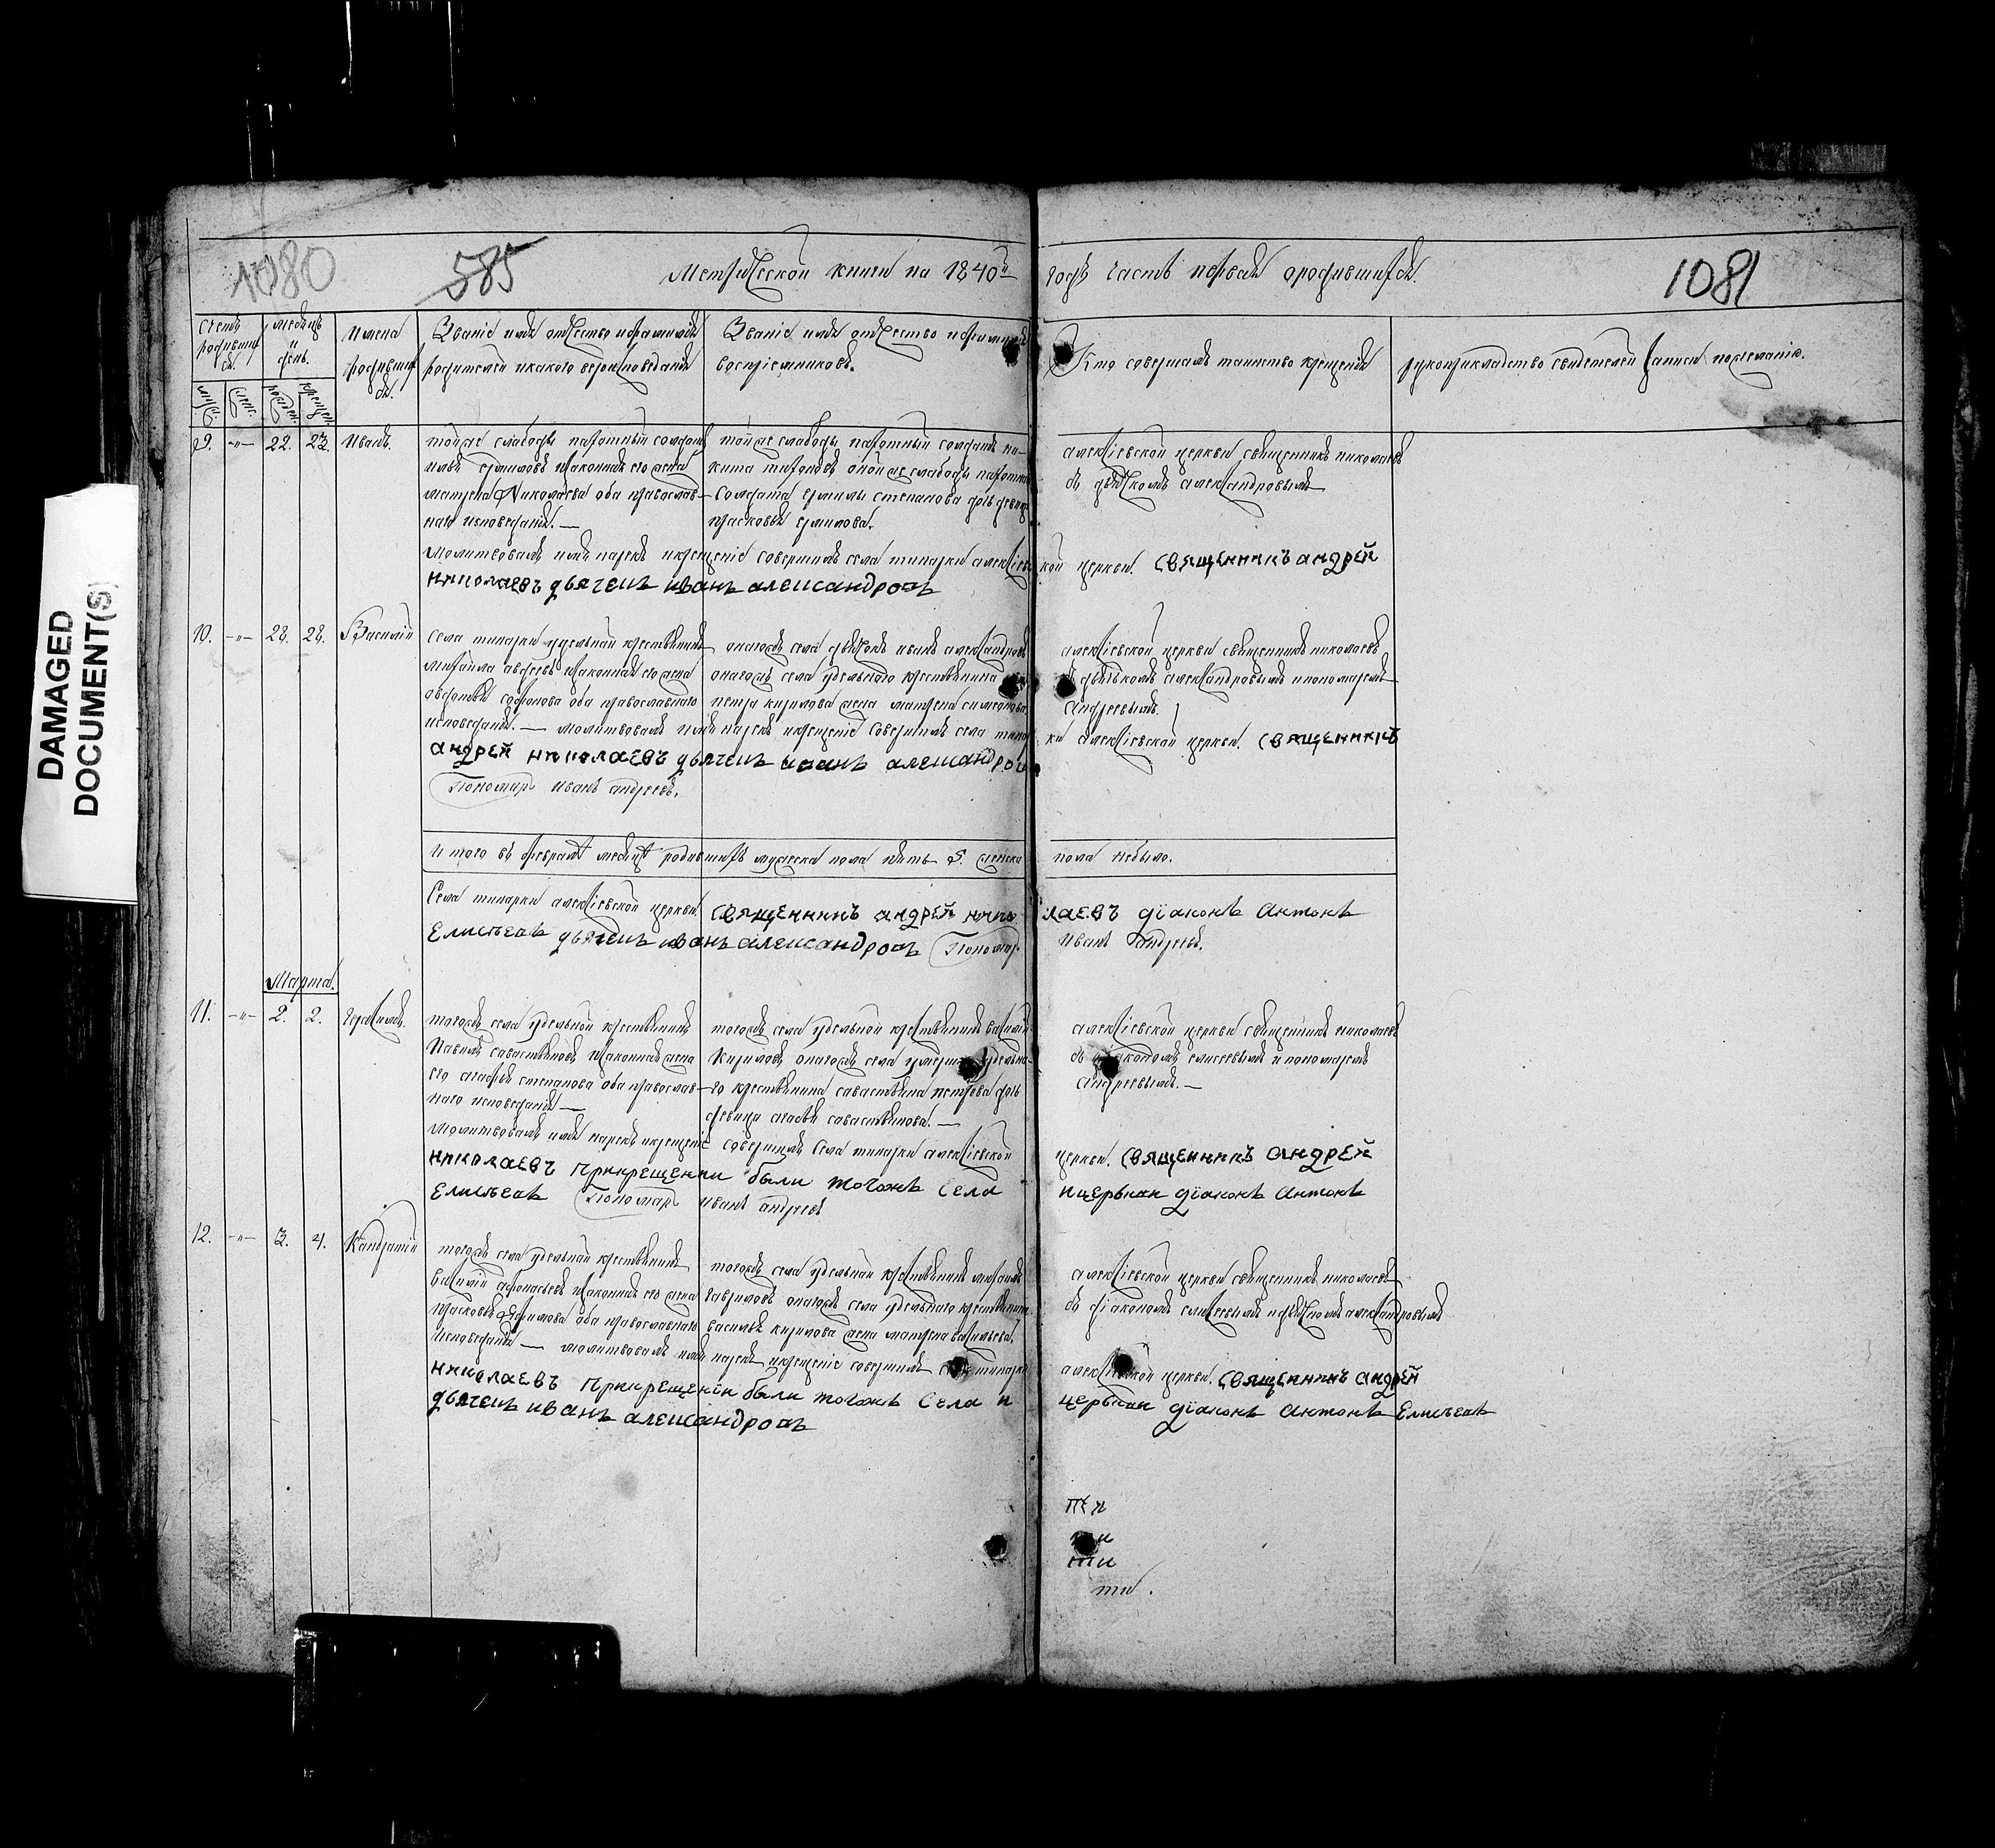 1080
585
Метрической книги на 1840й
годъ часть первая ородившихся.
1081
Счетъ родившихся.
месяцъ и день.
Имена родившихся.
Званіе имя отчество ифамилія родителей икакого вероисповеданія
Званіе имя отчество ифамилія воспріемниковъ.
Кто совершалъ таинство крещенія
рукоприкладство свидетелей записи пожеланію.
9. -"- 22. 23. Иванъ.
тойже слабоды пахотный солдатъ
законная его жена
матрена Николаева оба православ-
наго исповеданія.—
тойже слабоды пахотный солдатъ ни-
кита онойже слабоды пахотна
солдата степанова дочь девица
прасковья ермилова.
алексіевской церкви священникъ николаевъ
съ дьячкомъ александровымъ
Молитвовалъ имя нарекъ икрещеніе совершилъ села алексіевс
кой церкви. Священникъ андрей
николаевъ дьячекъ иванъ александровъ
10. -"- 28. 28. Василій
Села удельной крестьянинъ
михайла авдеевъ законная его жена
оба православнаго
исповеданія.—
оногожъ села дьячокъ иванъ александровъ
оногожъ села удельного крестьянина
петра кирилова жена матрена симеонова
алексіевской церкви священникъ николаевъ
съ дьячькомъ александровымъ ипономаремъ
андреевымъ.
молитвовалъ имя нарекъ икрещеніе совершилъ села
ки алексіевской церкви. Священникъ
андрей николаевъ дьячекъ иванъ александровъ
Пономарь иванъ андреевъ.
И того въ феврале месяце родившихъ мужеска пола пять 5. женска
пола небыло.
Села алексіевской церкви священникъ андрей нико
лаевъ діаконъ Антонъ
Елисѣевъ дьячекъ иванъ александровъ Пономарь
иванъ андреевъ.
Марта.
11. -"- 2. 2. Герасимъ.
тогожъ села удельной крестьянинъ
Павелъ савастьяновъ законная жена
его степанова оба православ-
наго исповеданія—
тогожъ села удельной крестьянинъ василій
Кириловъ оногожъ села удельна-
го крестьянина савастьяна петрова дочь
девица савастьянова.—
алексіевской церкви священникъ николаевъ
съ діакономъ елисеевымъ ипономаремъ
андреевымъ.—
Молитвовалъ имя нарекъ икрещеніе совершилъ Села алексіевской
церкви. Священникъ андрей
николаевъ Прикрещении были тогожъ Села
ицерькви діаконъ Антонъ
Елисѣевъ Пономарь иванъ андреевъ
12. -"- 3. 4. Кандратій
тогожъ села удельной крестьянинъ
Василій афонасьевъ законная его жена
прасковья оба православнаго
исповеданія—
тогожъ села удельной крестьянинъ михаилъ
гавриловъ оногожъ села удельнаго крестьянина
василья кирилова жена матрена васильева.
алексіевской церкви священникъ николаевъ
съ діакономъ елисеевымъ идьячкомъ александровымъ
молитвовалъ имя нарекъ икрещеніе совершилъ
церкви. Священникъ андрей
николаевъ Прикрещеніи были тогожъ Села и
церькви діаконъ Антонъ Елисѣевъ
дьячекъ иванъ александровъ
DAMAGED
DOCUMENT(S)